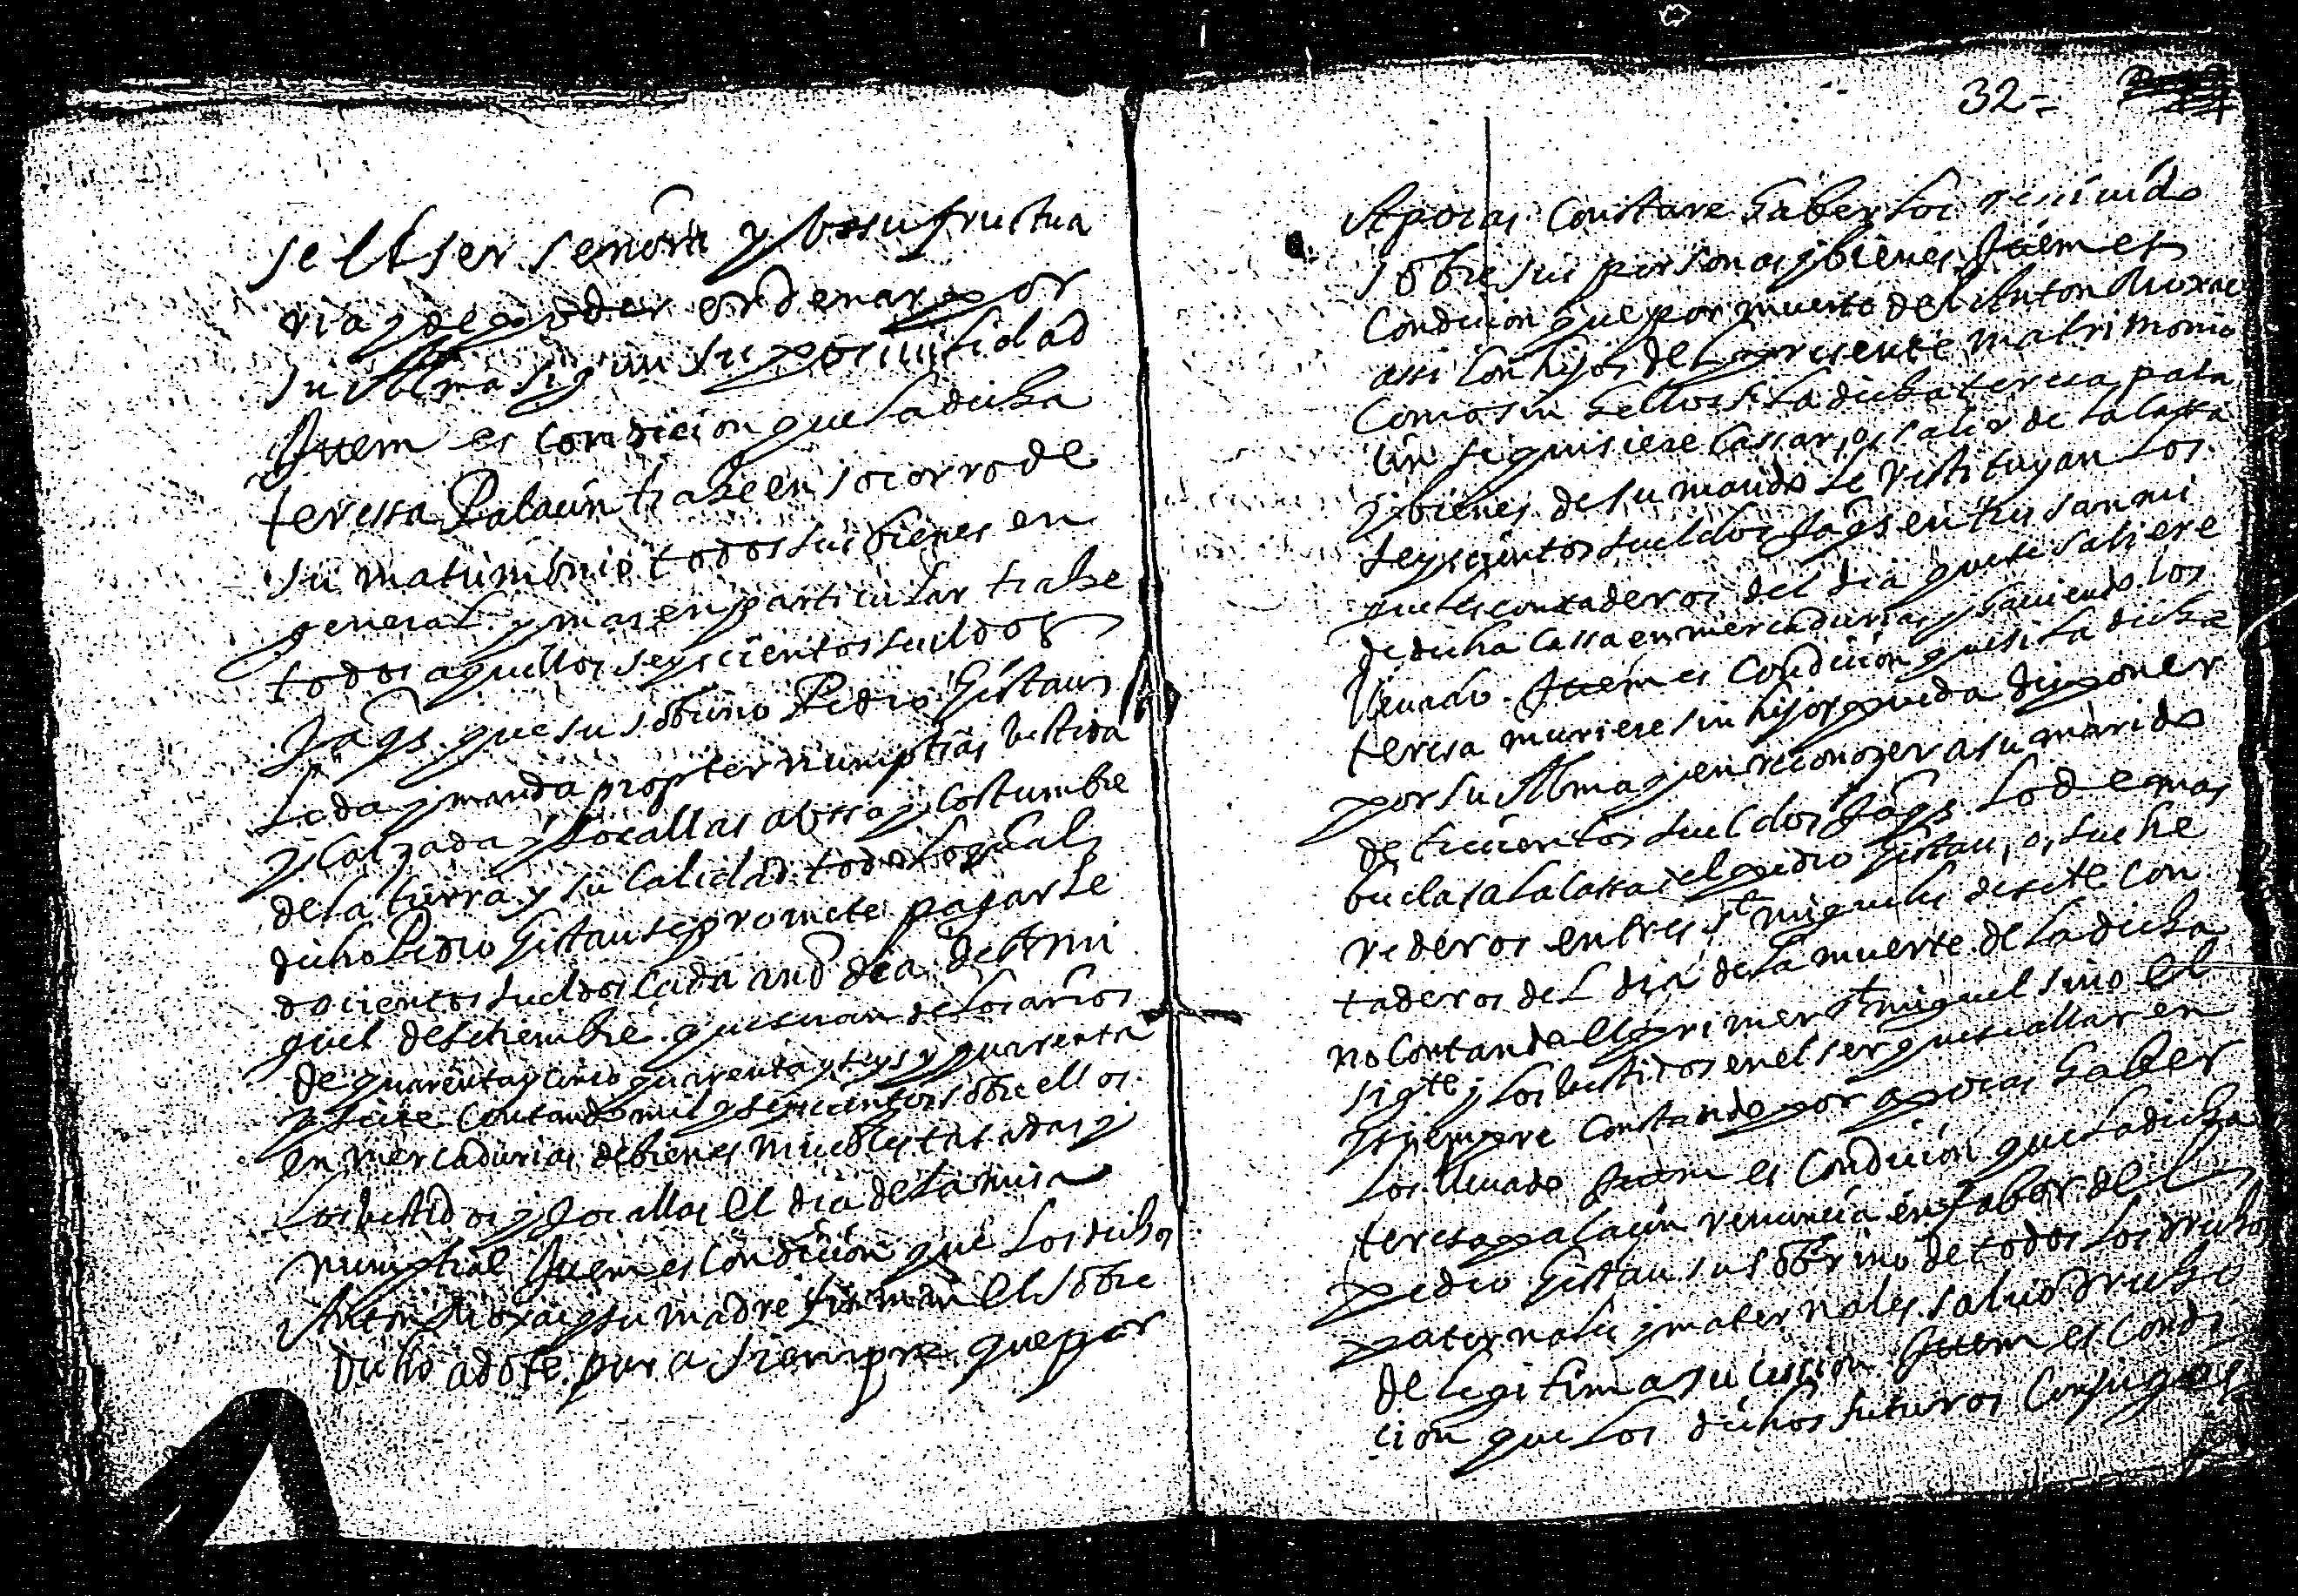 se el ser señora y vssufructua
ria y de poder ordenar por
su Alma sigun su possiuilidad
Ittem es condicion que la dicha
teressa Palacin trahe en socorro de
su matrimonio todos sus bienes en
general y mas en particular trahe
todos aquellos seyscientos sueldos
Jaqs. que su sobrino Pedro Gistau
le da y manda propter numptias bestida
y calzada y Jocallas a vssa y costumbre
de la tierra y su calidad todo lo qual
dicho Pedro Gistau se promete pagarle
docientos sueldos cada año dia de st mi
guel de setiembre que seran de los años
de quarenta y cinco quarenta y seys y quarenta
y siete contando mil y seyscientos sobre ellos
en mercadurias de bienes muebles tasadas y
los bestidos y Jocallas el dia de la misa
numptial Ittem es condicion que los dichos
Anton y su madre firman el sobre
dicho adote para siempre que por
32
Apocas constare haberlos reciuido
sobre sus personas y bienes Ittem es
condicion que por muerte del Anton
assi con hijos del presente matrimonio
como sin hellos si la dicha teresa pala
cin se quisiere cassar, o, salir de la cassa
y bienes de su marido se restituyan los
seyscientos sueldos Jaqs en tres sanmi
gueles contaderos del dia que se saliere
de dicha cassa en mercadurias y haciendo los
lleuado. Ittem es condicion que si la dicha
teresa muriere sin hijos pueda disponer
por su Alma y en reconozer a su marido
de ducientos sueldos Jaqs. lo demas
buelba a la cassa del pedro Gistau, o, sus he
rederos en tres st migueles de sete con
taderos del dia de la muerte de la dicha
no contando el primer st miguel sino el
sigte y los bestidos en el ser que se allaren
y siempre constando por apocas haber
los lleuado Ittem es condicion que la dicha
teresa palacin renuncia en fabor del
pedro Gistau su sobrino de todos los drechos
paternales y maternales saluo drecho
de legitima sucession Ittem es condi
cion que los dichos futuros conjuges